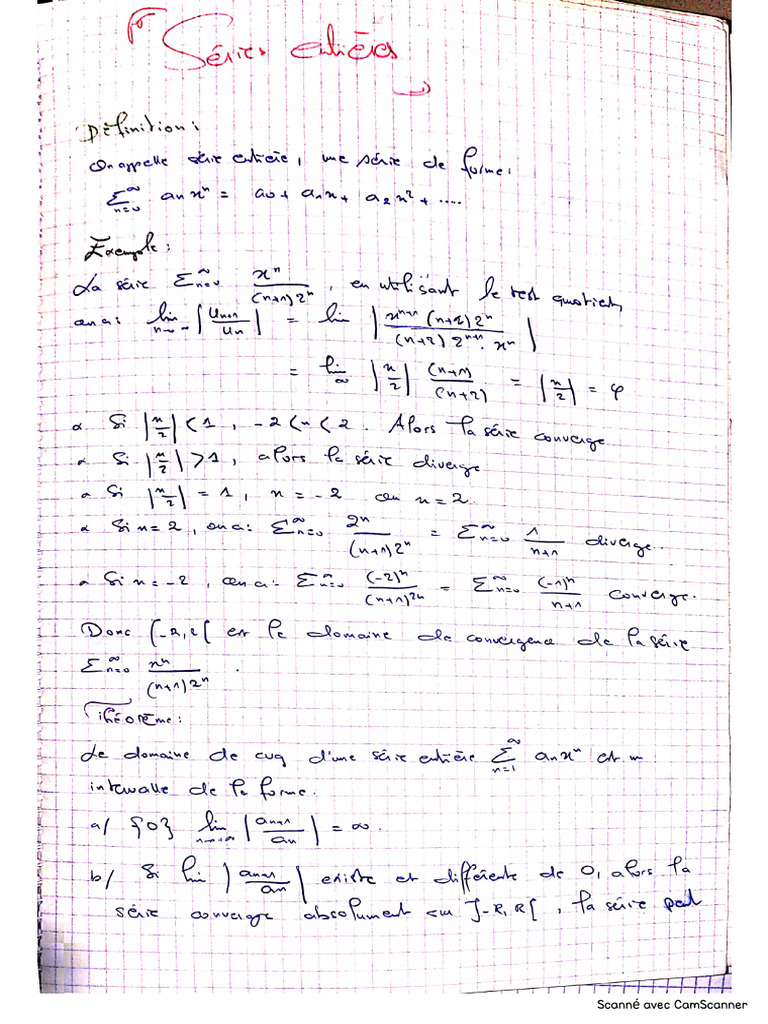 Séries entières
Définition:
On appelle série entière, une série de forme:
∑_{n=0}^{∞} an xⁿ = a0 + a1x + a2x² + ....
Exemple:
La série ∑_{n=0}^{∞} xⁿ/((n+1)2ⁿ), en utilisant le test quotient,
on a: lim_{n→∞} |Un+1/Un| = lim |xⁿ⁺¹ (n+1)2ⁿ / ((n+2) 2ⁿ⁺¹ · xⁿ)|
= lim_{∞} |x/2| (n+1)/(n+2) = |x/2| = φ
Si |x/2| < 1, -2 < x < 2. Alors la série converge
Si |x/2| > 1, alors la série diverge
Si |x/2| = 1, x = -2 ou x = 2.
Si x = 2, on a: ∑_{n=0}^{∞} 2ⁿ/((n+1)2ⁿ) = ∑_{n=0}^{∞} 1/(n+1) diverge.
Si x = -2, on a: ∑_{n=0}^{∞} (-2)ⁿ/((n+1)2ⁿ) = ∑_{n=0}^{∞} (-1)ⁿ/(n+1) converge.
Donc [-2,2[ est le domaine de convergence de la série
∑_{n=0}^{∞} xⁿ/((n+1)2ⁿ).
Théorème:
Le domaine de cvg d'une série entière ∑_{n=1}^{∞} an xⁿ est un
intervalle de la forme.
a/ {0} lim_{n→+∞} |an+1/an| = ∞.
b/ Si lim |an+1/an| existe et différente de 0, alors la
série converge absolument sur ]-R, R[, la série peut
Scanné avec CamScanner